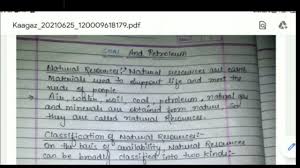 Kaagaz_20210625_120009618179.pdf
Coal And Petroleum
Natural Resources:- Natural resources are
Materials used to support life and meet the
needs of people
→ Air, water, soil, coal, petroleum, natural gas
and minerals are obtained from nature, so
they are called natural Resources.
Classification of Natural Resources:-
On the basis of availability, Natural Resources
can be broadly classified into two kinds:-